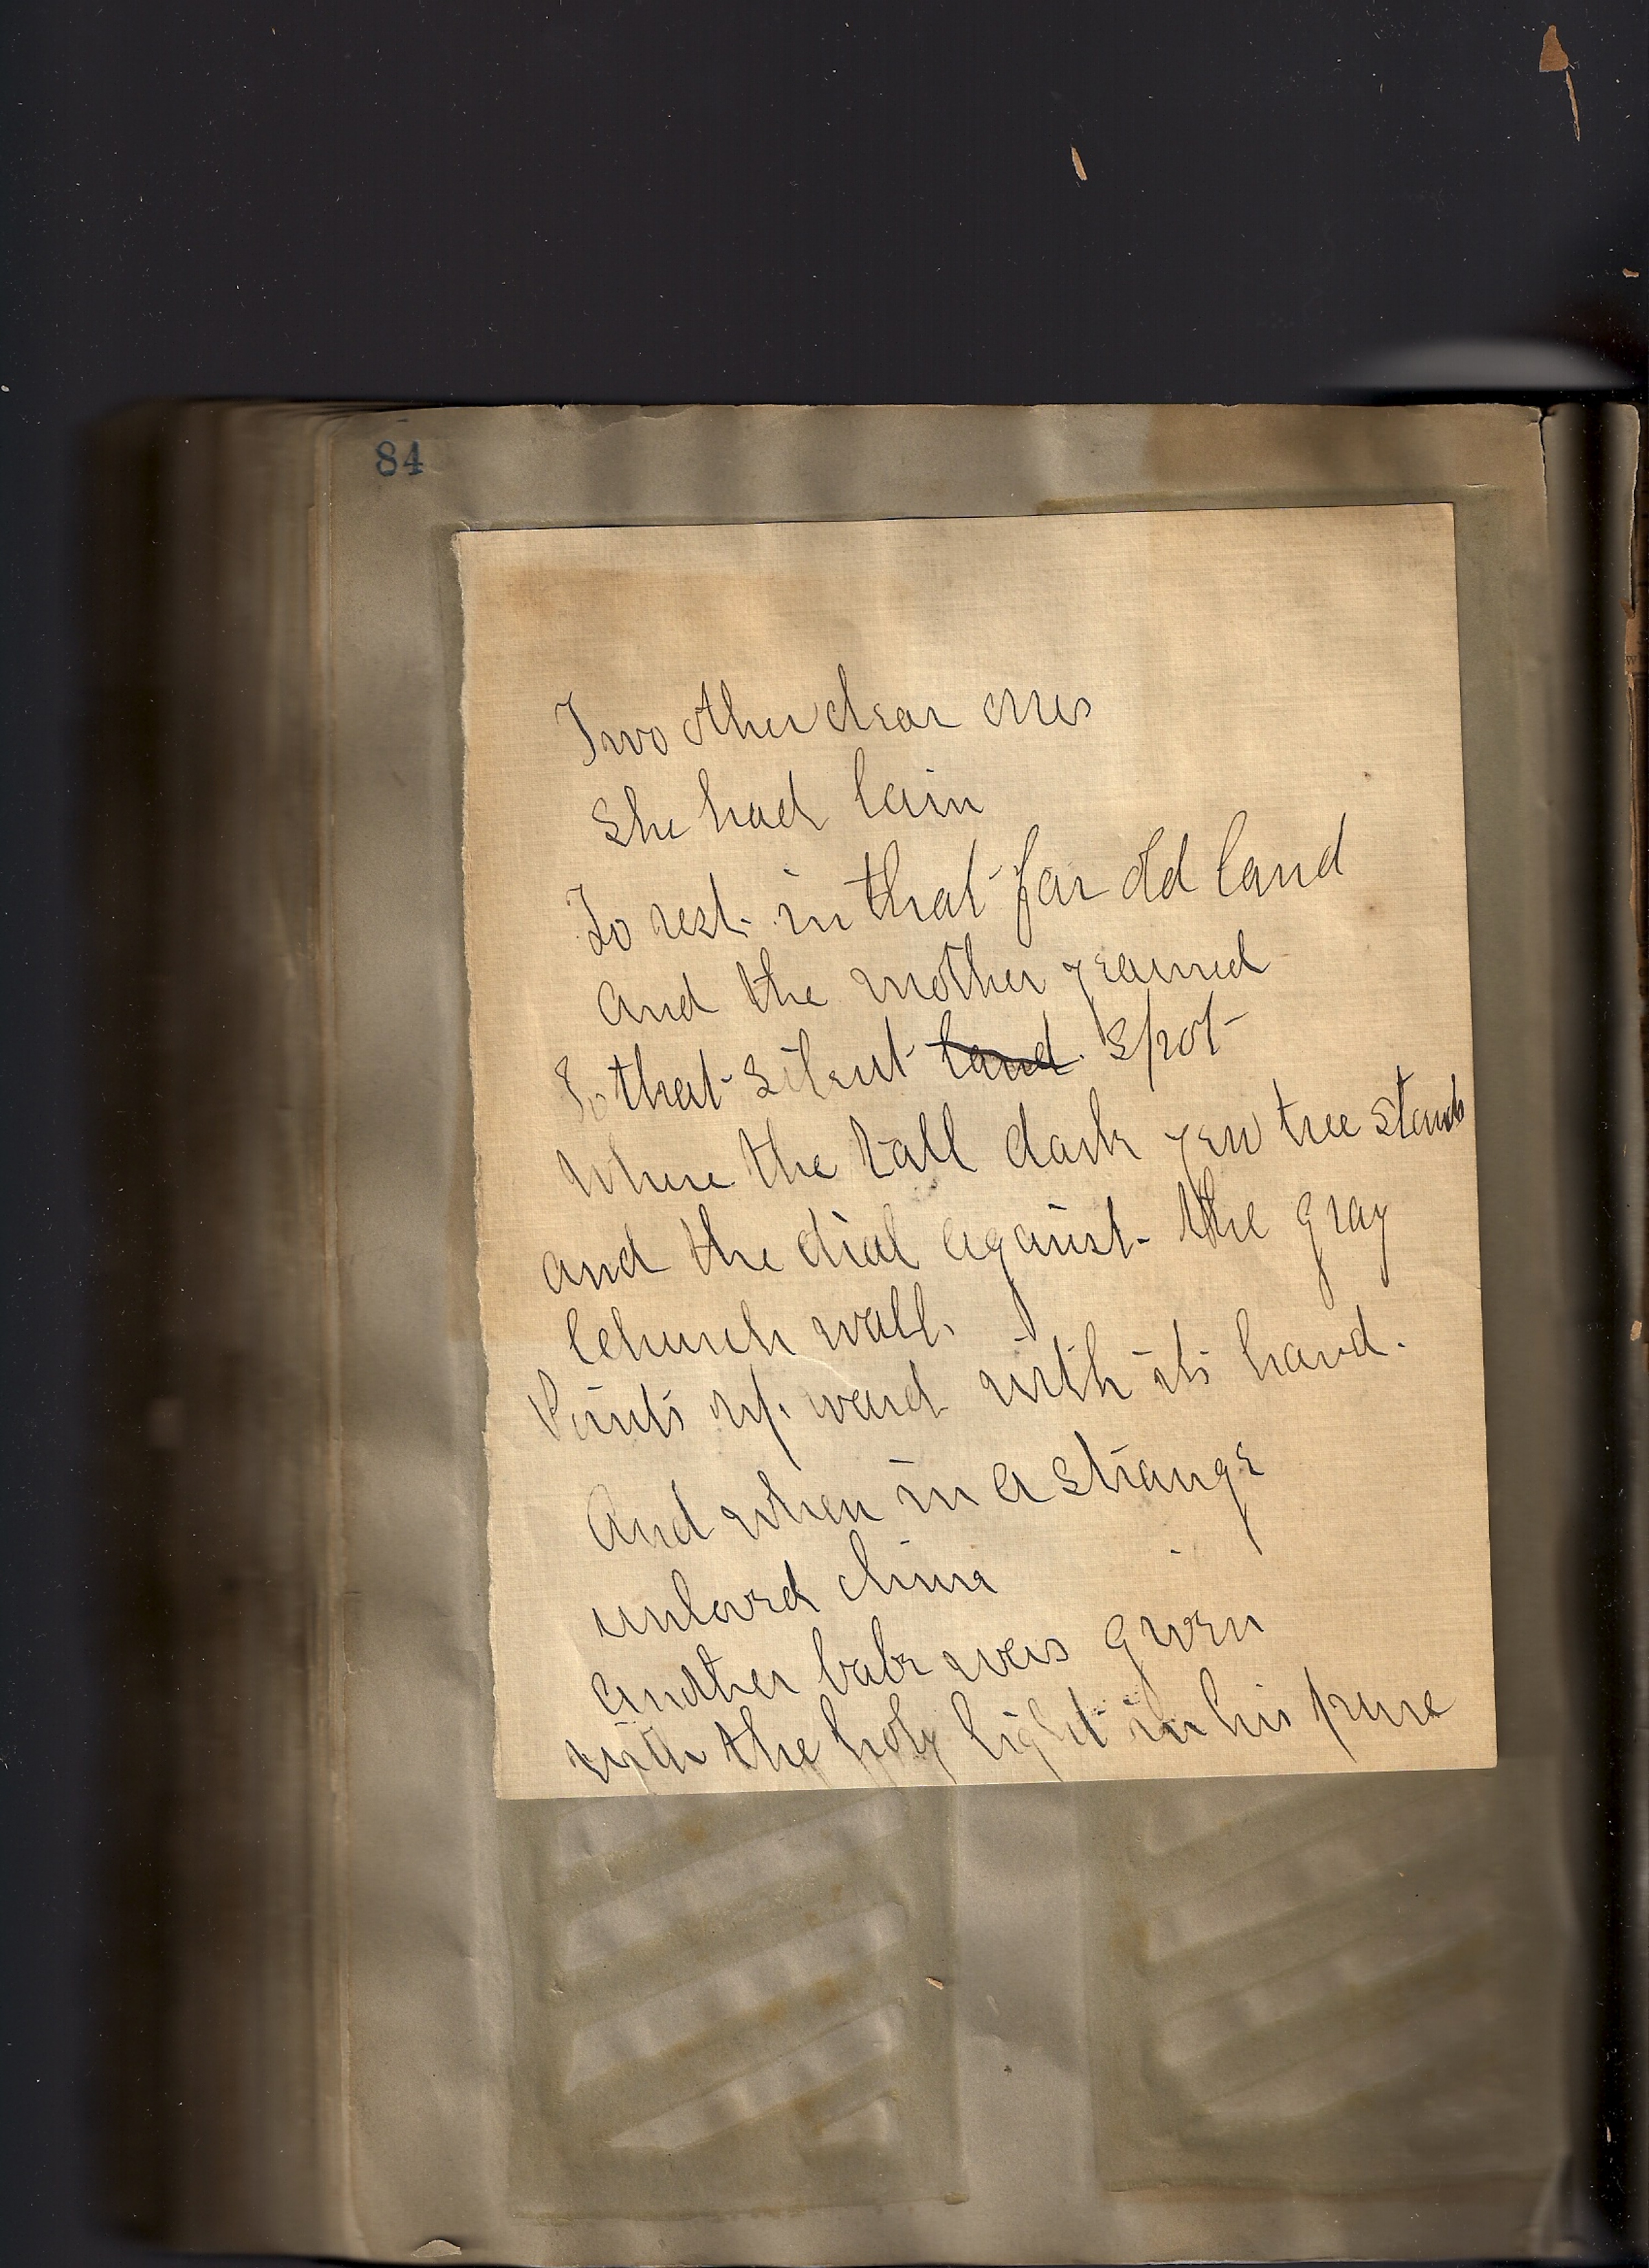 84
Two other dear ones
She had lain
To rest in that far old land
and the mother yearned
To that silent land. spot
where the tall dark yew tree stands
and the dial against the gray
Church wall.
Points up ward with its hand.
And when in a strange
unloved clime
another babe was given
with the holy light in his pure